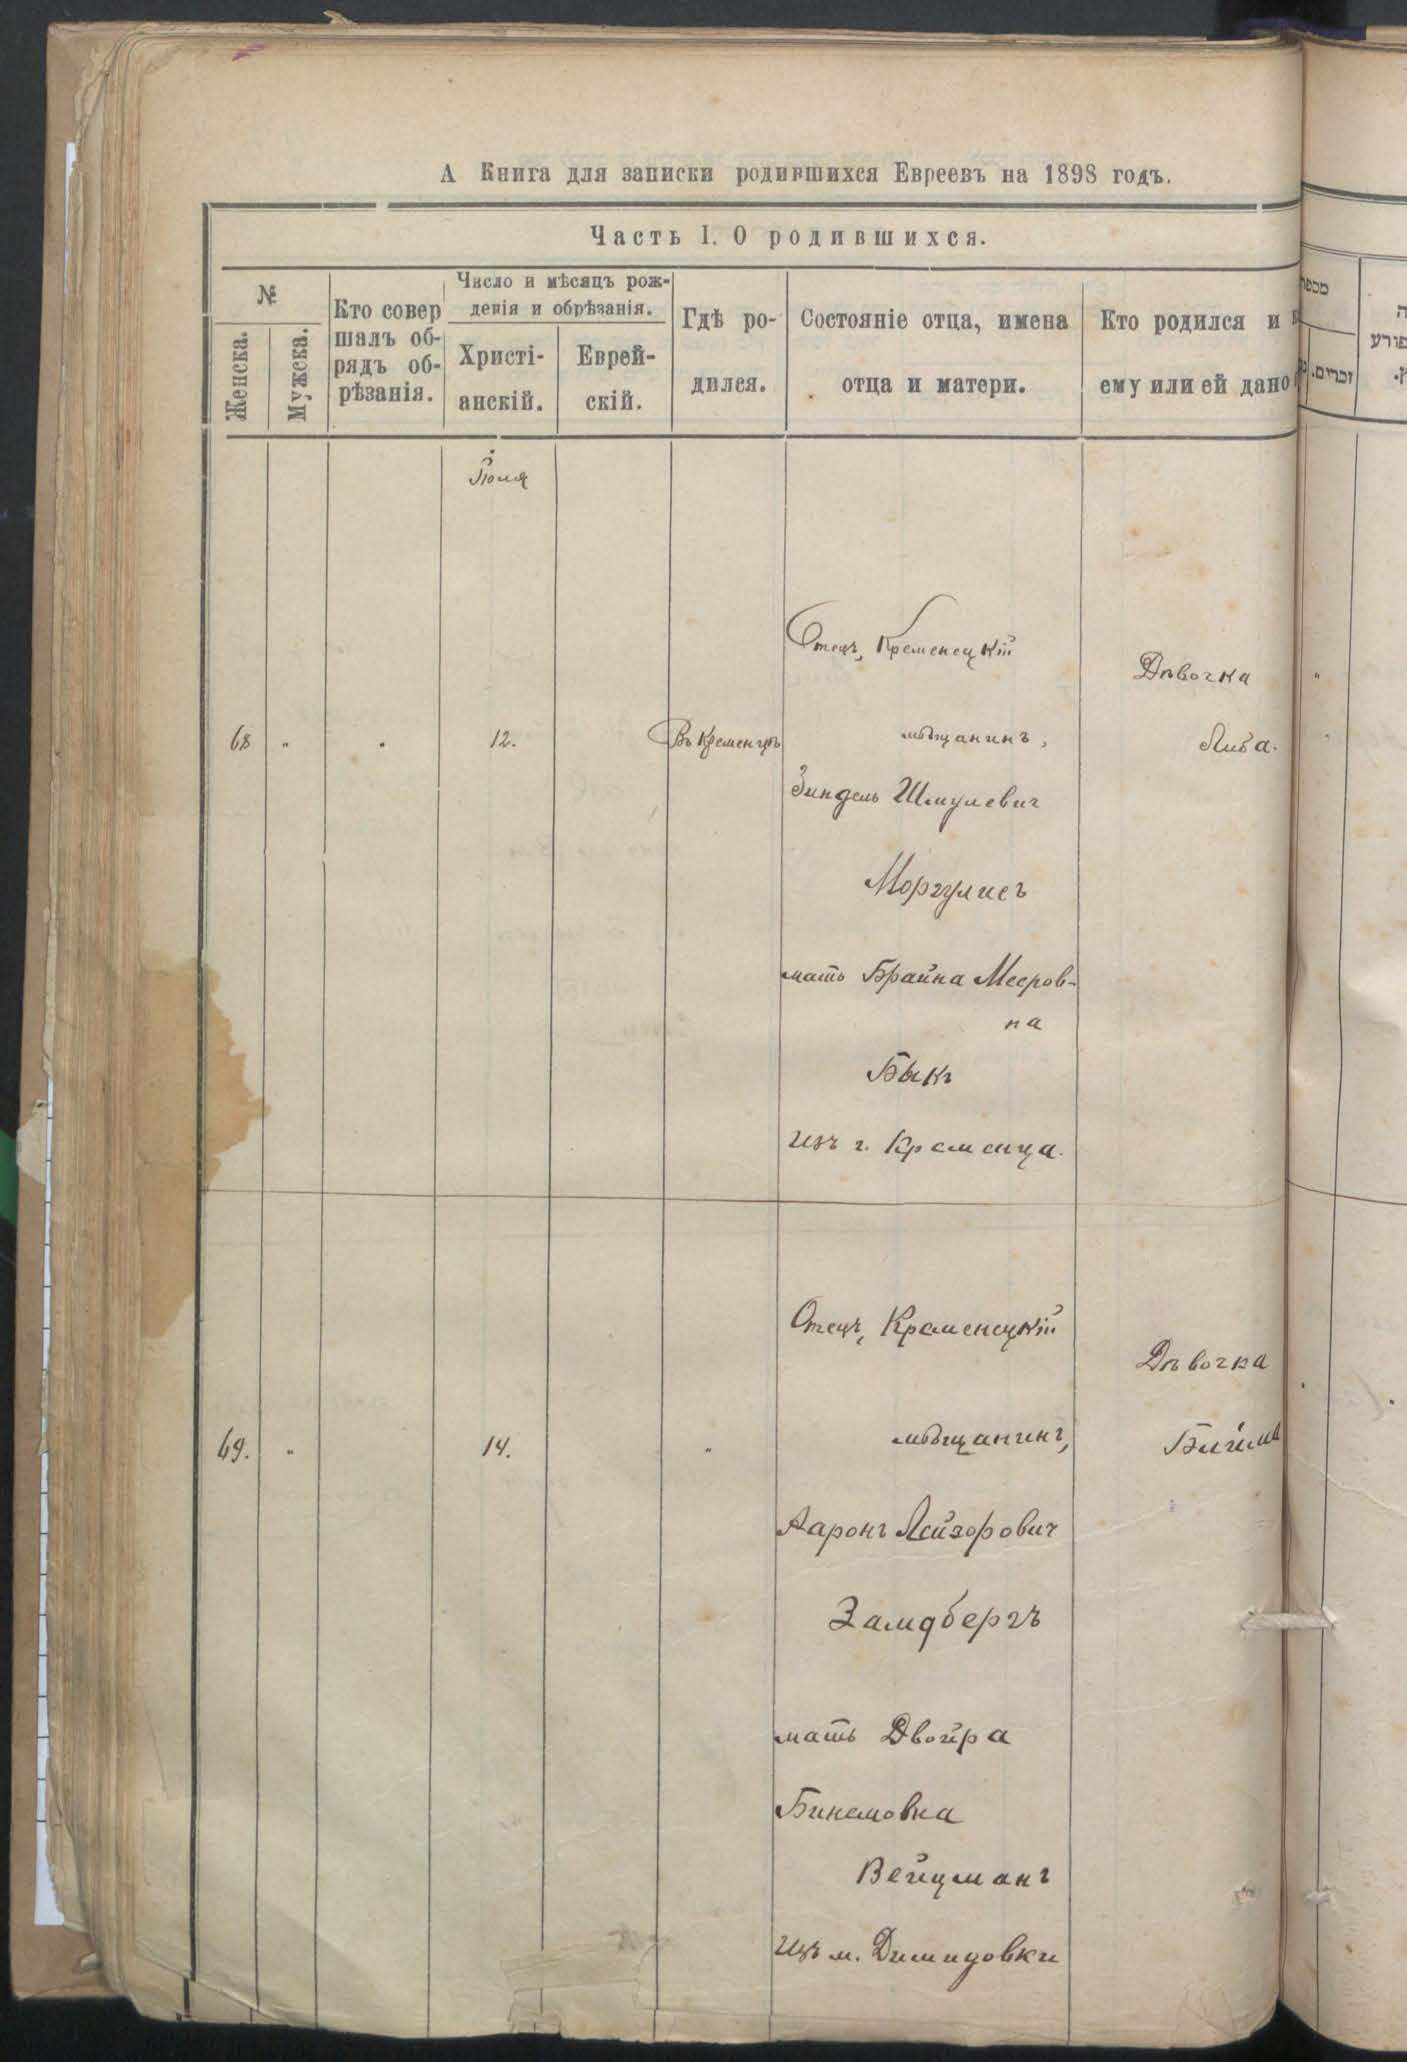 А Книга для записки родившихся Евреевъ на 1898 годъ.
Часть I. О родившихся.
№
Женска.
Мужска.
Кто совер
шалъ об-
рядъ об-
рѣзанія.
Число и мѣсяцъ рож-
денія и обрѣзанія.
Христі-
анскій.
Еврей-
скій.
Гдѣ ро-
дился.
Состояніе отца, имена
отца и матери.
Кто родился и
ему или ей дано
זכרים.
Іюля
68 " " 12. Въ Кременцѣ
Отецъ, Кременецкій
мѣщанинъ,
Зиндель Шмулевич
Моргулисъ
мать Брайна Мееров-
на
Быкъ
изъ г. Кременца.
Дѣвочка
Либа.
69. " 14. "
Отецъ, Кременецкій
мѣщанинъ,
Ааронъ Лейзорович
Замдбергъ
мать Двойра
Бинемовна
Вейцманъ
Изъ м. Димидовки
Дѣвочка